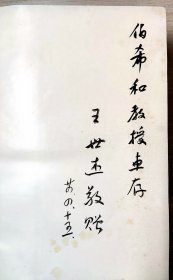 伯希和教授惠存
王世杰敬贈
廿、四、十五、